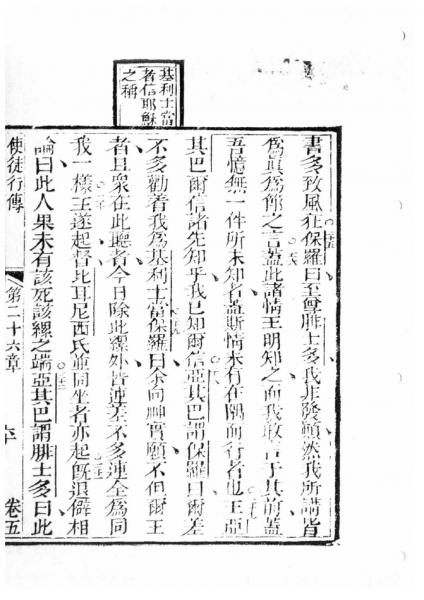 基利士當
者信耶穌
之稱
書多致風狂保羅曰至尊腓士多我非發顛然我所講皆
爲眞爲節之言蓋此諸情王明知之而我敢言于其前蓋
吾憶無一件所未知者蓋斯情未有在隅而行者也王亞
其巴爾信諸先知乎我已知爾信亞其巴謂保羅曰爾差
不多勸著我爲基利士當保羅曰余向神實願不但爾王
者且衆在此聽者今日除此縲外皆連差不多連全爲同
我一樣王遂起督比耳尼西氏並同坐者亦起旣退僻相
論曰此人果未有該死該縲之端亞其巴謂腓士多曰此
使徒行傳
第二十六章
卷五